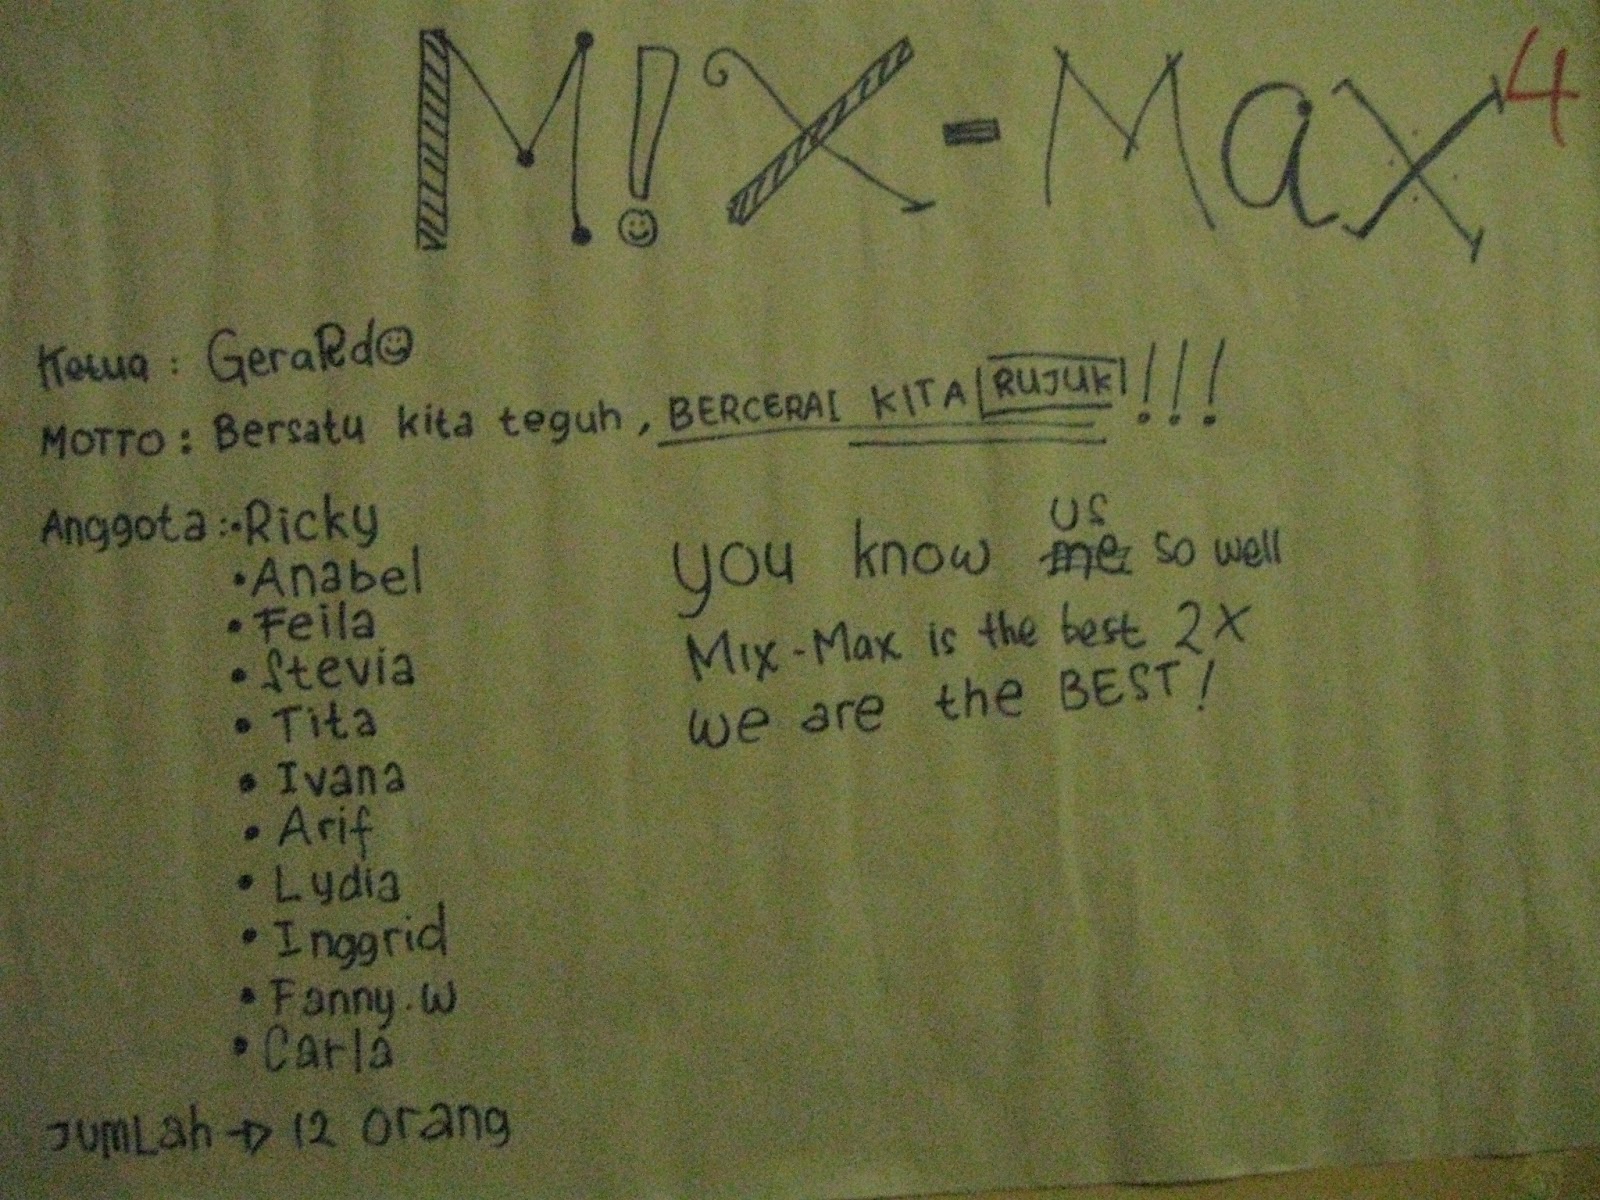 M!X - Max 4
Ketua : GeraRdo
MOTTO : Bersatu kita teguh, BERCERAI KITA RUJUK!!!
Anggota : • Ricky
• Anabel
• Feila
• Stevia
• Tita
• Ivana
• Arif
• Lydia
• Inggrid
• Fanny.W
• Carla
JUMLah → 12 orang
you know us me so well
Mix-Max is the best 2X
we are the BEST!